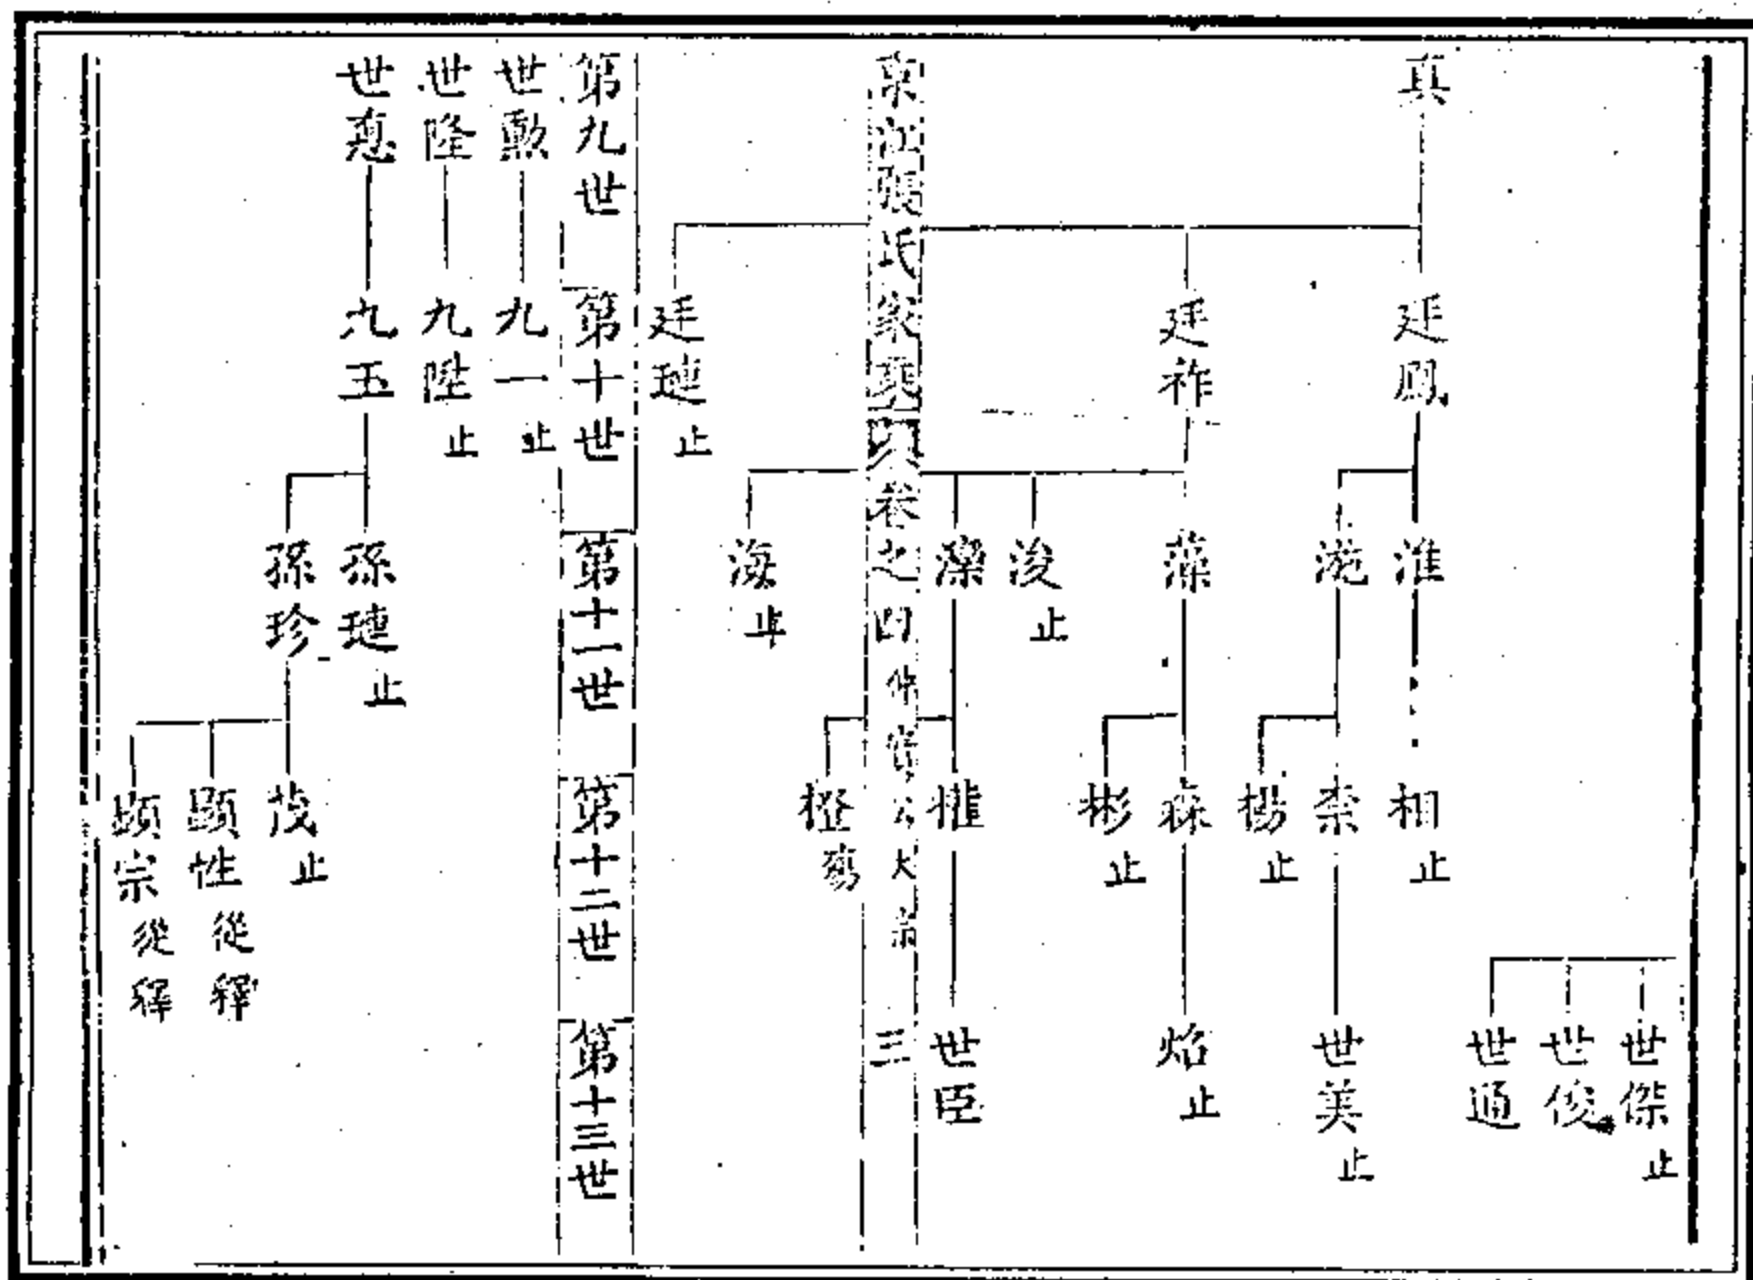 真
廷鳳
廷祚
廷璉 止
淮
藻
浚 止
濼
海 止
相 止
柰
楊 止
森
彬 止
權
橙 殤
世傑 止
世俊
世通
世美 止
焰 止
世臣
張氏家乘 卷之四 仲賓公大宗 三
第九世
第十世
第十一世
第十二世
第十三世
世勲
世隆
世惪
九一 止
九陞 止
九玉
孫璉 止
孫珍
茂 止
顯性 從釋
顯宗 從釋